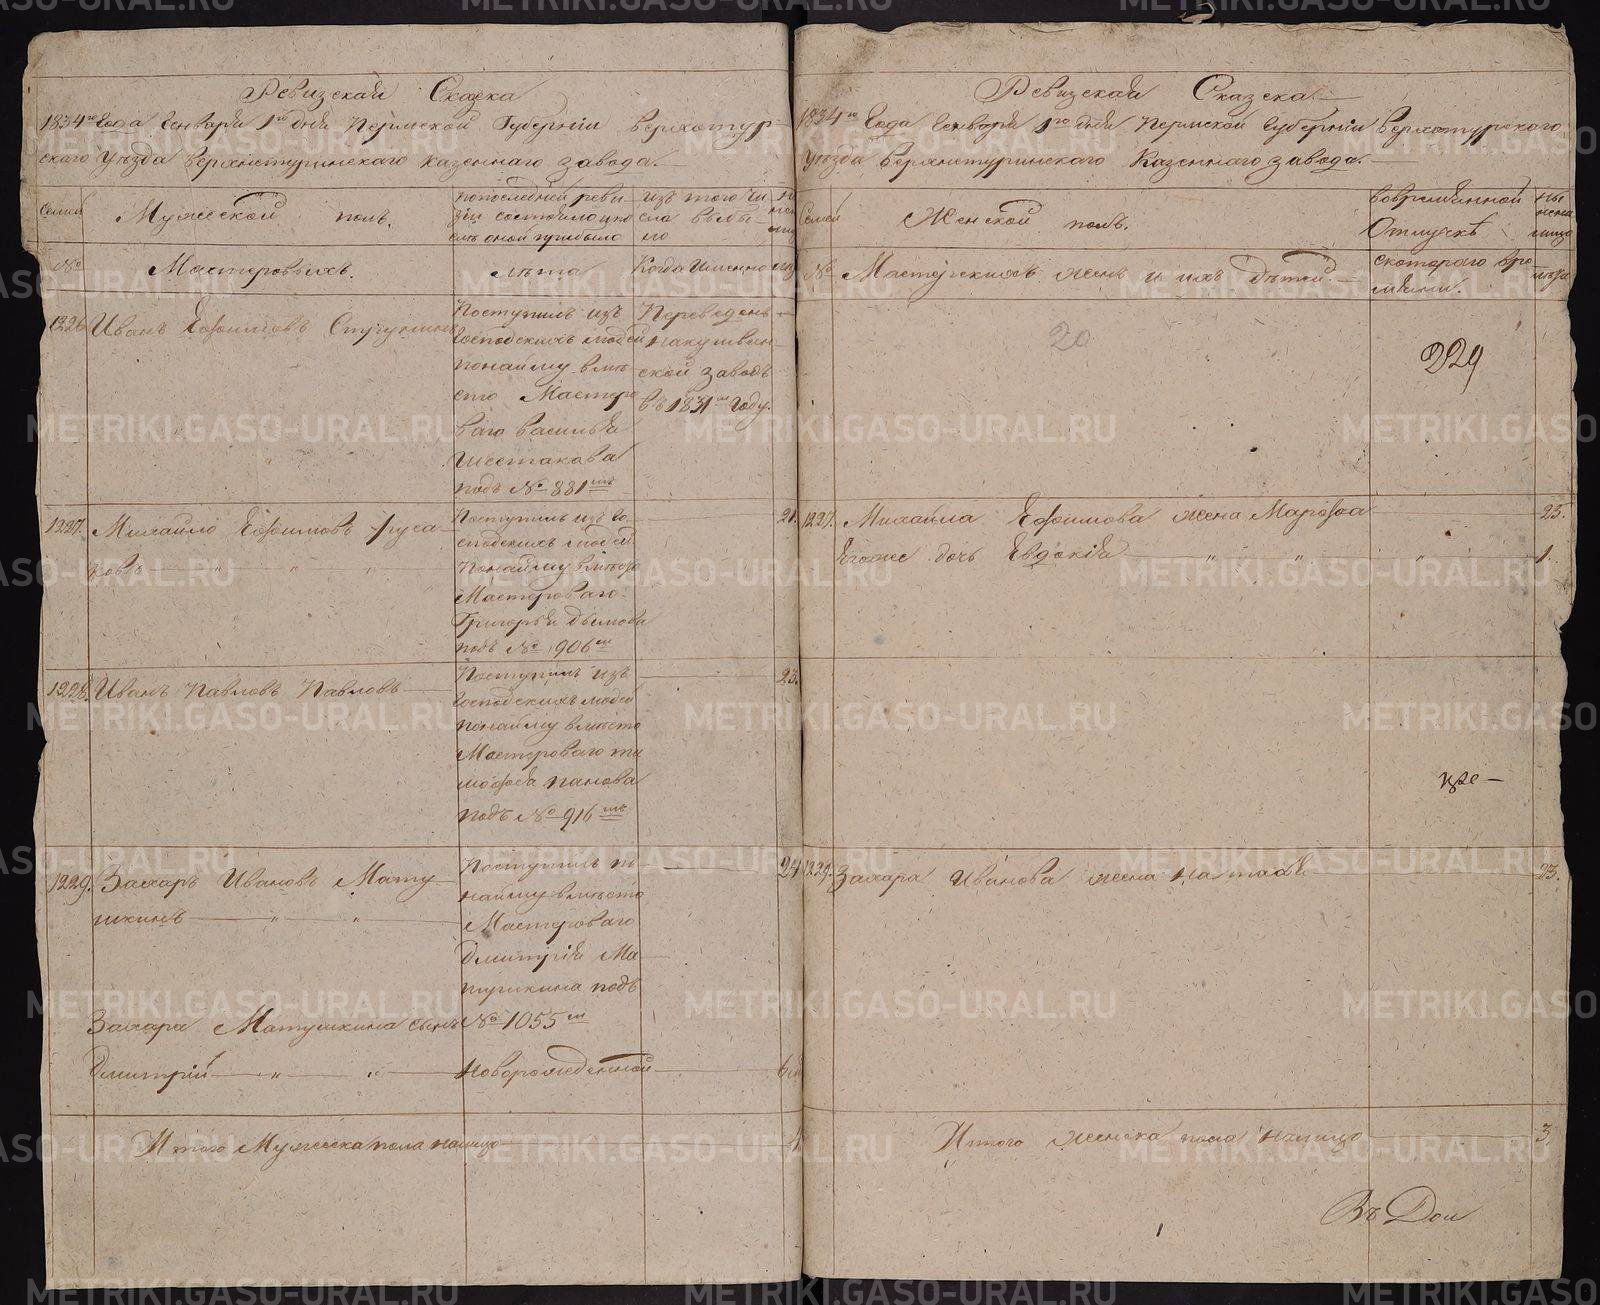 Ревизская Сказка
1834го Года Генваря 1го дня Пермской Губернiи Верхотур-
скаго Уезда Верхнетуринскаго казеннаго завода.
Семей
Мужеской полъ.
по последней реви
зiи состояло и по
слъ оной прибыло
изъ того чи
сла выбы
ло
№
Мастеровыхъ.
лета
Когда Именно
1226
Иванъ Ефимовъ
Поступилъ изъ
Господскихъ людей
по найму вме
сто Мастеро
ваго Василья
Шестакова
подъ № 881мъ
Переведенъ
на кушвин-
ской заводъ
въ 1831м году.
1227.
Михайло Ефимовъ Руса
ковъ
Поступилъ изъ го
сподскихъ людей
По найму вместо
Мастероваго
Григорья Дылдова
подъ № 906м
21.
1228.
Иванъ Павловъ Павловъ
Поступилъ изъ
Господскихъ людей
по найму вместо
Мастероваго ти
мофея панова
подъ № 916мъ
23.
1229.
Захаръ Ивановъ Мату
шкинъ
Поступилъ по
найму вместо
Мастероваго
Дмитрiя Ма-
тушкина подъ
№ 1055м
24
Захара Матушкина сынъ
Дмитрiй
Новорожденной
Итого Мужеска пола налицо
4
Ревизская Сказка
1834го Года Генваря 1го дня Пермской Губернiи Верхотурскаго
Уезда Верхнетуринскаго Казеннаго завода.
Семей
Женской полъ.
Во временной
Отлучкъ
Ны
нена
лицо
№
Мастерскихъ женъ и ихъ детей
с котораго вре
мени.
лета
20
229
1227.
Михайла Ефимова жена Марфа
23.
Его же дочь Евдокiя
1.
1229.
Захара Иванова жена Наталья
23.
Итого женска пола налицо
3.
METRIKI.GASO-URAL.RU